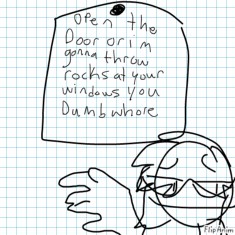 Open the
Door or im
gonna throw
rocks at your
windows you
Dumb whore
FlipAnim